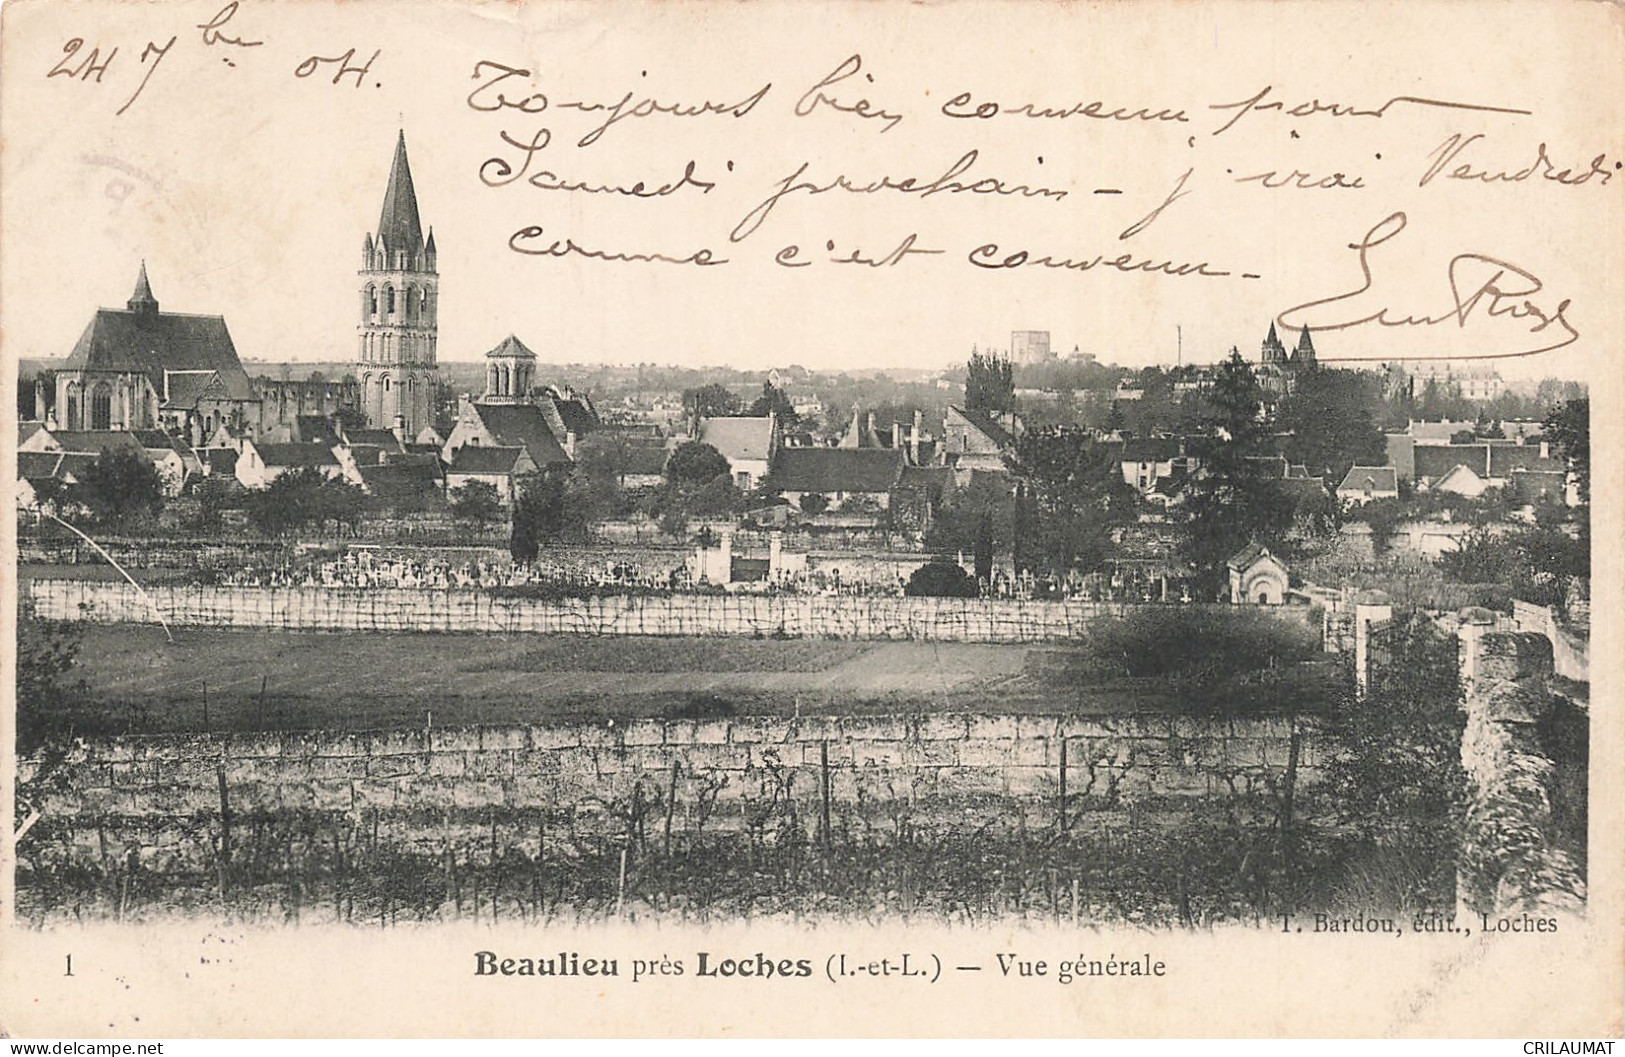 24 7bre 04.
Toujours bien convenu pour
Samedi prochain - j'irai Vendredi
comme c'est convenu -
T. Bardou, édit., Loches
1
Beaulieu près Loches (I.-et-L.) — Vue générale
www.delcampe.net
CRILAUMAT